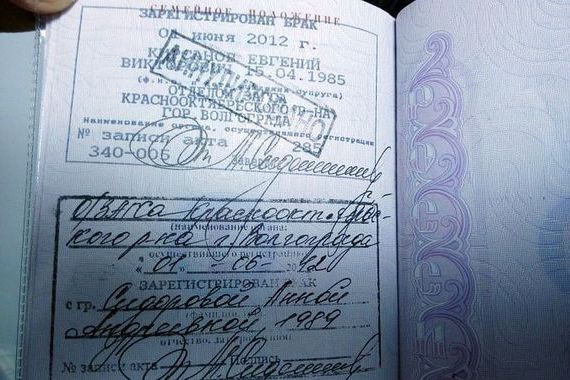 СЕМЕЙНОЕ ПОЛОЖЕНИЕ
ЗАРЕГИСТРИРОВАН БРАК
01 июня 2012 г.
ЕВГЕНИЙ
15.04.1985
ОТДЕЛОМ
КРАСНООКТЯБРЬСКОГО Р-НА
ГОР. ВОЛГОГРАДА
Наименование органа, осуществившего регистрацию
№ записи акта 285
340-006
О/ЗАГСа Краснооктябрьс-
кого р-на г. Волгограда
(наименование органа,
осуществившего регистрацию)
"01" 06 2012
ЗАРЕГИСТРИРОВАН БРАК
с гр. Сидоровой Анной
Андреевной, 1989
отчество, дата рожд.
№ записи акта
Подпись